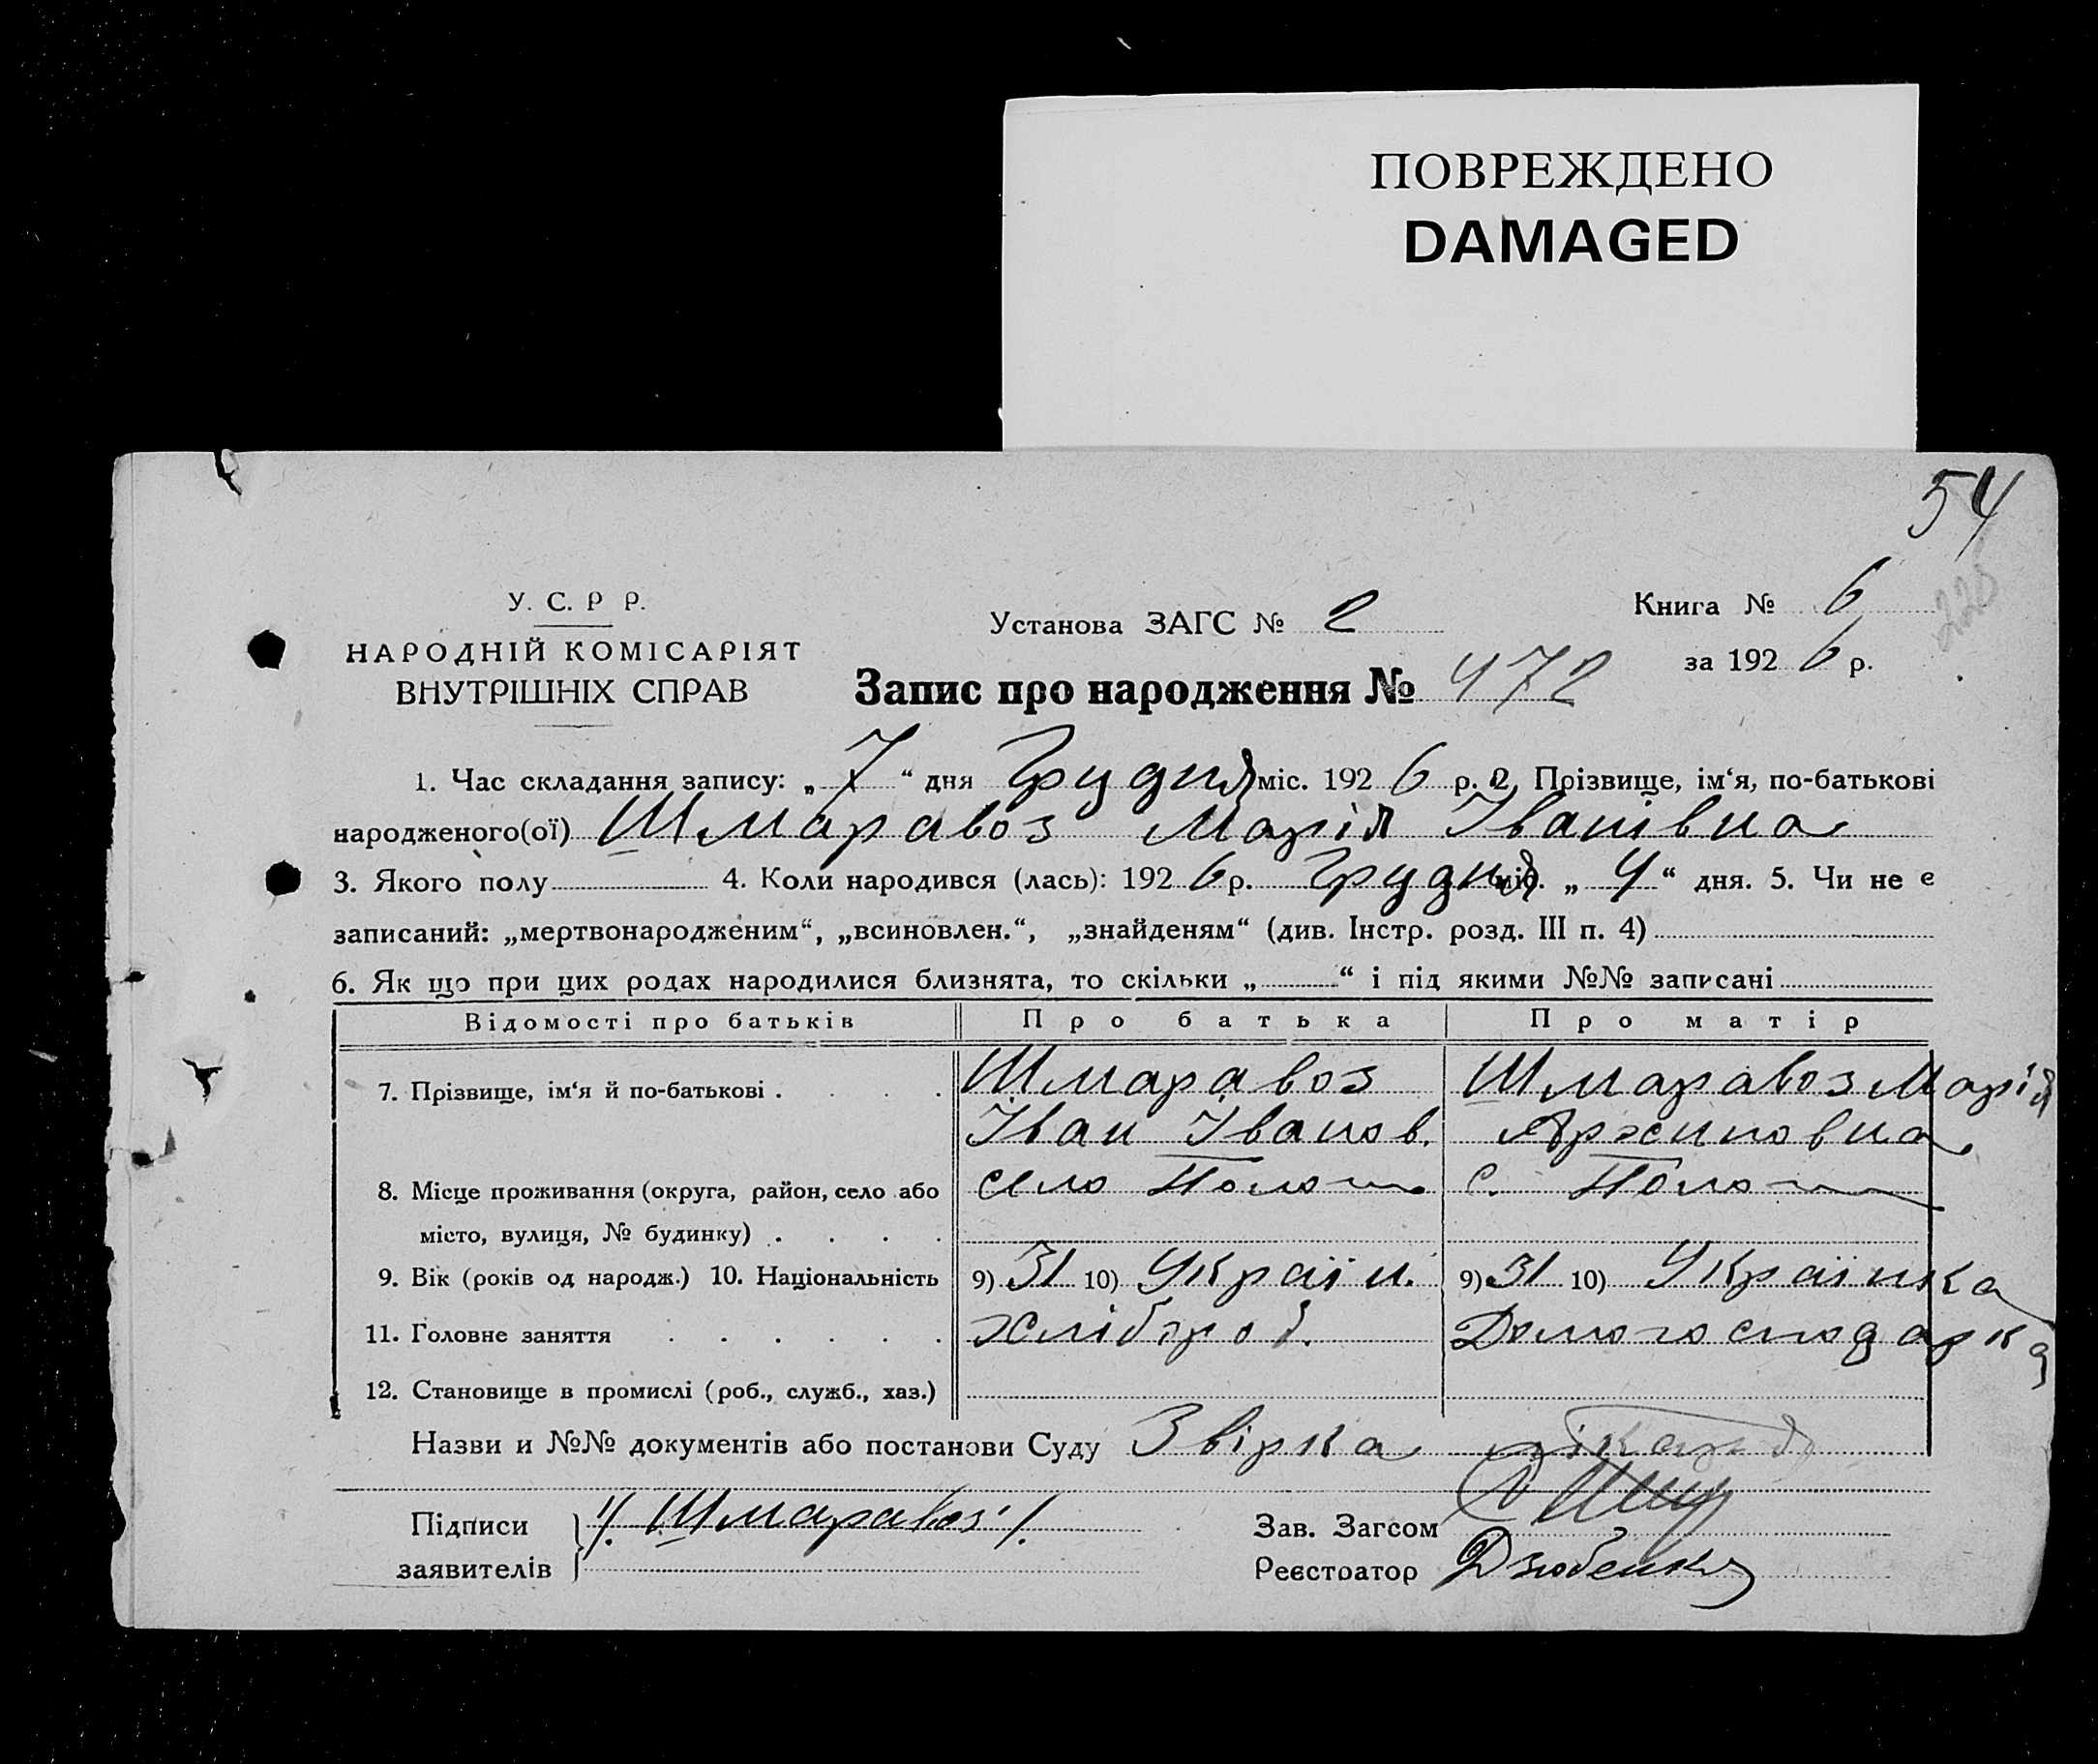 ПОВРЕЖДЕНО
DAMAGED
54
У. С. Р Р.
НАРОДНІЙ КОМІСАРІЯТ
ВНУТРІШНІХ СПРАВ
Установа ЗАГС № 2
Книга № 6
за 1926 р.
Запис про народження № 472
1. Час складання запису: „7“ дня Грудня міс. 1926 р. 2. Прізвище, ім‘я, по-батькові
народженого(ої) Шмаравоз Марія Іванівна
3. Якого полу 4. Коли народився (лась): 1926 р. Грудня міс. „4“ дня. 5. Чи не є
записаний: „мертвонародженим“, „всиновлен.“, „знайденям“ (див. Інстр. розд. III п. 4)
6. Як що при цих родах народилися близнята, то скільки „ “ і під якими №№ записані
Відомості про батьків Про батька Про матір
7. Прізвище, ім‘я й по-батькові Шмаравоз Шмаравоз Марія
Іван Іванов. Архиповна
8. Місце проживання (округа, район, село або село с.
місто, вулиця, № будинку)
9. Вік (років од народж.) 10. Національність 9) 31 10) Україн. 9) 31 10) Українка
11. Головне заняття Хлібороб. Домогосподарка
12. Становище в промислі (роб., служб., хаз.)
Назви и №№ документів або постанови Суду Звірка
Підписи /Шмаравоз/ Зав. Загсом
заявителів Реєстратор Дзюбенко